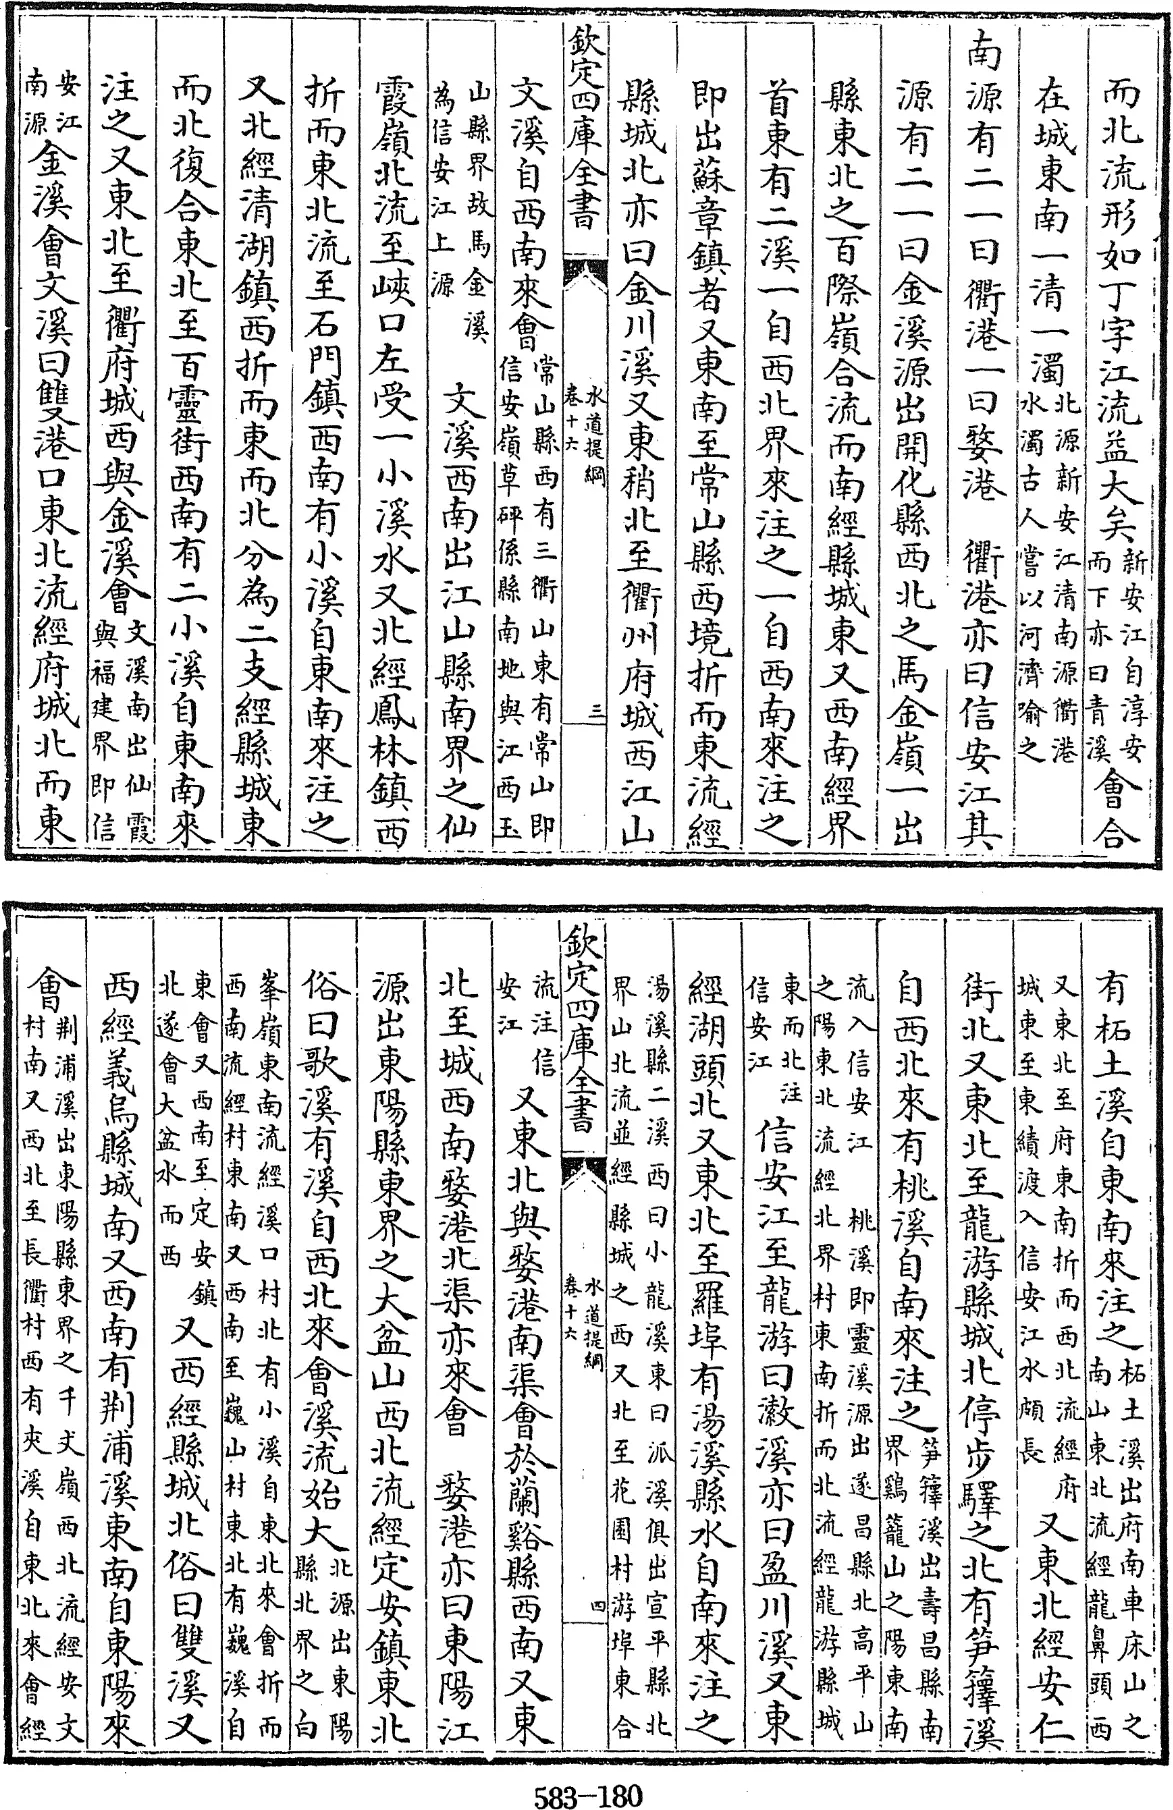 而北流形如丁字江流益大矣新安江自淳安而下亦曰青溪會合
在城東南一清一濁北源新安江清南源衢港水濁古人嘗以河濟喻之
南源有二一曰衢港一曰婺港　衢港亦曰信安江其
源有二一曰金溪源出開化縣西北之馬金嶺一出
縣東北之百際嶺合流而南經縣城東又西南經界
首東有二溪一自西北界來注之一自西南來注之
即出蘇章鎮者又東南至常山縣西境折而東流經
縣城北亦曰金川溪又東稍北至衢州府城西江山
欽定四庫全書　水道提綱卷十六　三
文溪自西南來會常山縣西有三衢山東有常山即信安嶺草砰係縣南地與江西玉
山縣界故馬金溪為信安江上源　文溪西南出江山縣南界之仙
霞嶺北流至峽口左受一小溪水又北經鳳林鎮西
折而東北流至石門鎮西南有小溪自東南來注之
又北經清湖鎮西折而東而北分為二支經縣城東
而北復合東北至百靈街西南有二小溪自東南來
注之又東北至衢府城西與金溪會文溪南出仙霞與福建界即信
安江南源金溪會文溪曰雙港口東北流經府城北而東
有柘土溪自東南來注之柘土溪出府南車床山之南山東北流經龍鼻頭西
又東北至府東南折而西北流經府城東至東績渡入信安江水頗長　又東北經安仁
街北又東北至龍游縣城北停步驛之北有笋籜溪
自西北來有桃溪自南來注之笋籜溪出壽昌縣南界鷄籠山之陽東南
流入信安江　桃溪即靈溪源出遂昌縣北高平山之陽東北流經北界村東南折而北流經龍游縣城
東而北注信安江　信安江至龍游曰瀫溪亦曰盈川溪又東
經湖頭北又東北至羅埠有湯溪縣水自南來注之
湯溪縣二溪西曰小龍溪東曰派溪俱出宣平縣北界山北流並經縣城之西又北至花園村游埠東合
欽定四庫全書　水道提綱卷十六　四
流注信安江　又東北與婺港南渠會於蘭谿縣西南又東
北至城西南婺港北渠亦來會　婺港亦曰東陽江
源出東陽縣東界之大盆山西北流經定安鎮東北
俗曰歌溪有溪自西北來會溪流始大北源出東陽縣北界之白
峯嶺東南流經溪口村北有小溪自東北來會折而西南流經村東南又西南至巍山村東北有巍溪自
東會又西南至定安鎮北遂會大盆水而西　又西經縣城北俗曰雙溪又
西經義烏縣城南又西南有荆浦溪東南自東陽來
會荆浦溪出東陽縣東界之千丈嶺西北流經安文村南又西北至長衢村西有夾溪自東北來會經
583-180